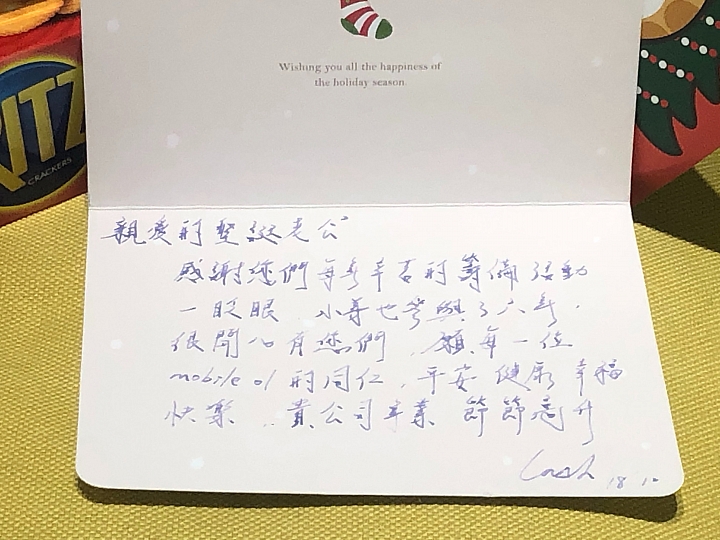 Wishing you all the happiness of
the holiday season.
RITZ
CRACKERS
親愛的聖誕老公
感謝您們每年辛苦的籌備活動
一眨眼 小尊也參與了六年.
很開心有您們, 願每一位
mobile 01 的同仁, 平安 健康 幸福
快樂, 貴公司事業 節節高升
18.12